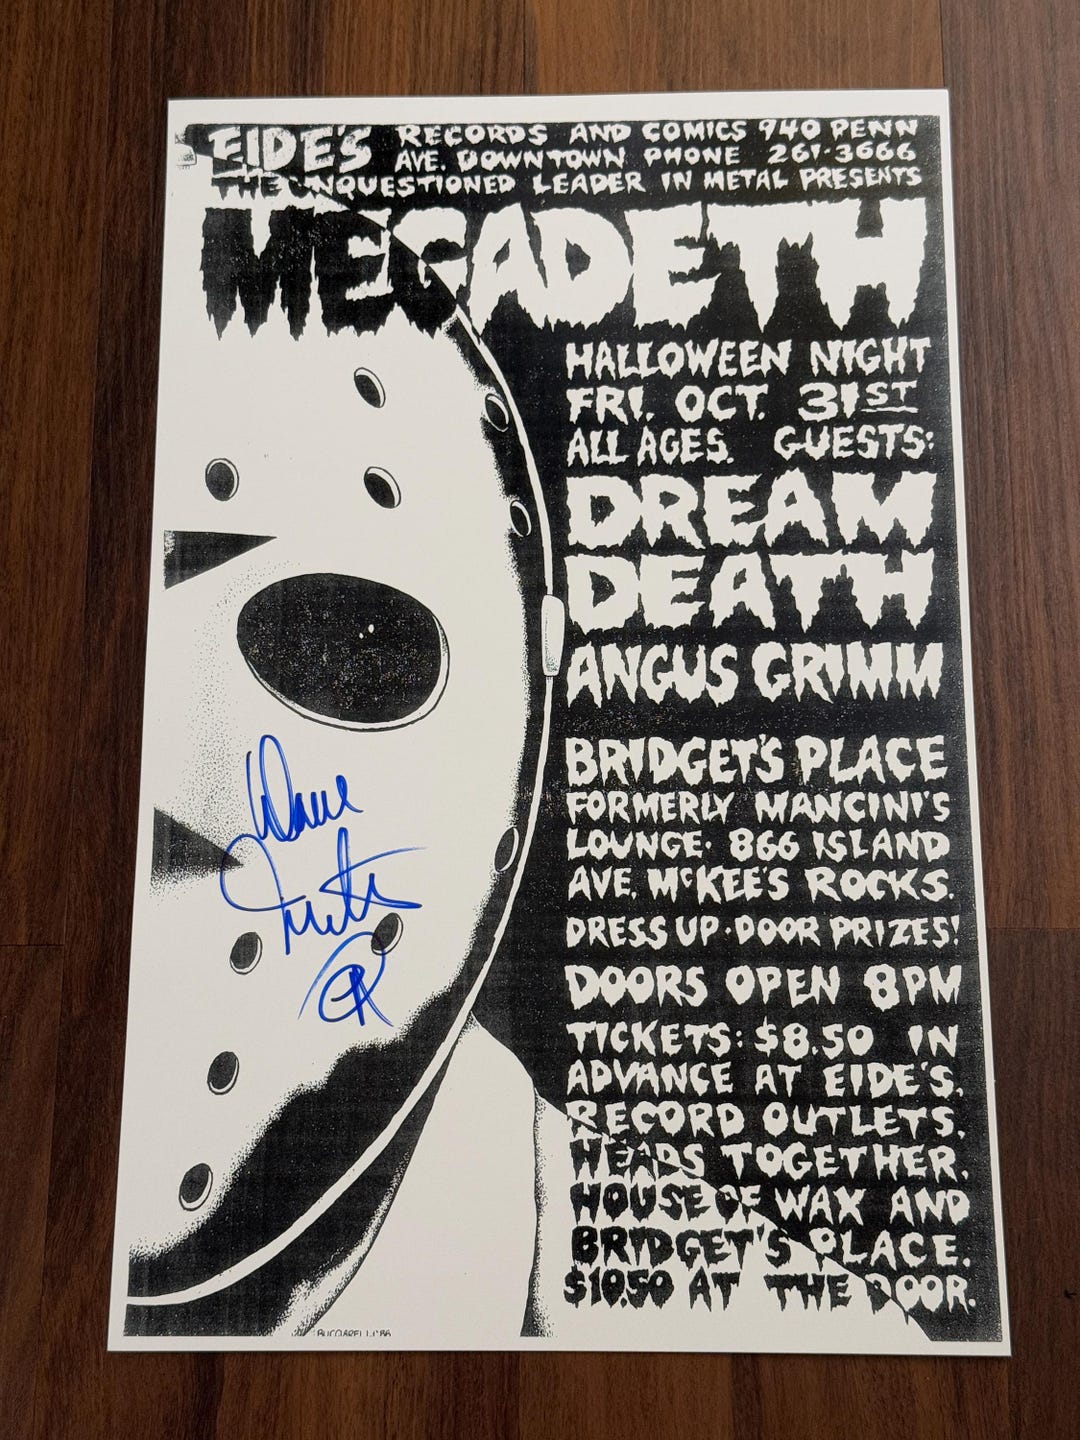 EIDE'S RECORDS AND COMICS 940 PENN
AVE. DOWNTOWN PHONE 261-3666
THE UNQUESTIONED LEADER IN METAL PRESENTS
MEGADETH
HALLOWEEN NIGHT
FRI. OCT. 31ST
ALL AGES. GUESTS:
DREAM
DEATH
ANGUS GRIMM
BRIDGET'S PLACE
FORMERLY MANCINI'S
LOUNGE · 866 ISLAND
AVE. McKEE'S ROCKS.
DRESS UP · DOOR PRIZES!
DOORS OPEN 8PM
TICKETS: $8.50 IN
ADVANCE AT EIDE'S,
RECORD OUTLETS,
HEADS TOGETHER,
HOUSE OF WAX AND
BRIDGET'S PLACE.
$10.50 AT THE DOOR.
Dave